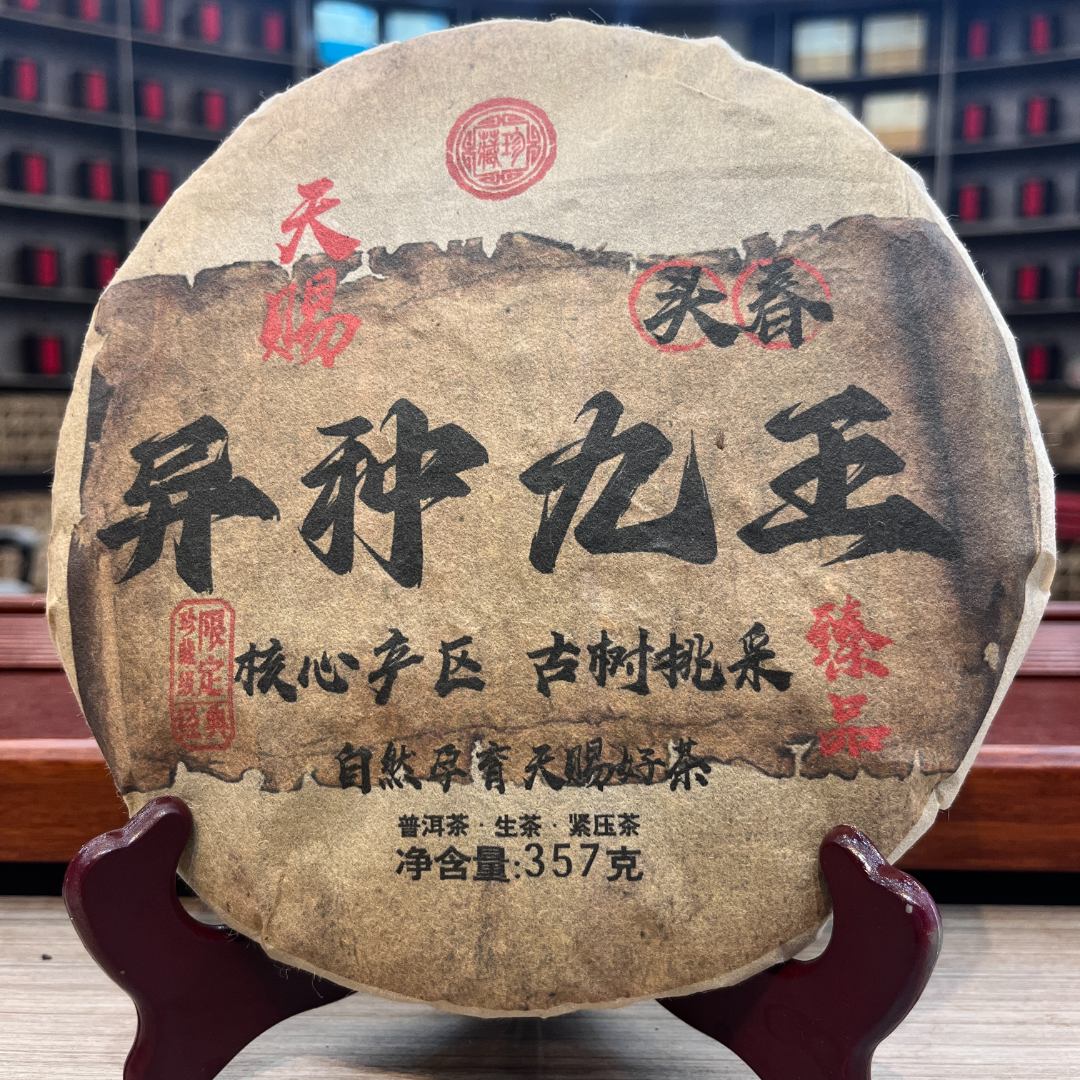 珍藏
天赐
头春
异种九王
限定
珍藏级
经典
核心产区 古树挑采
臻品
自然孕育天赐好茶
普洱茶·生茶·紧压茶
净含量:357克